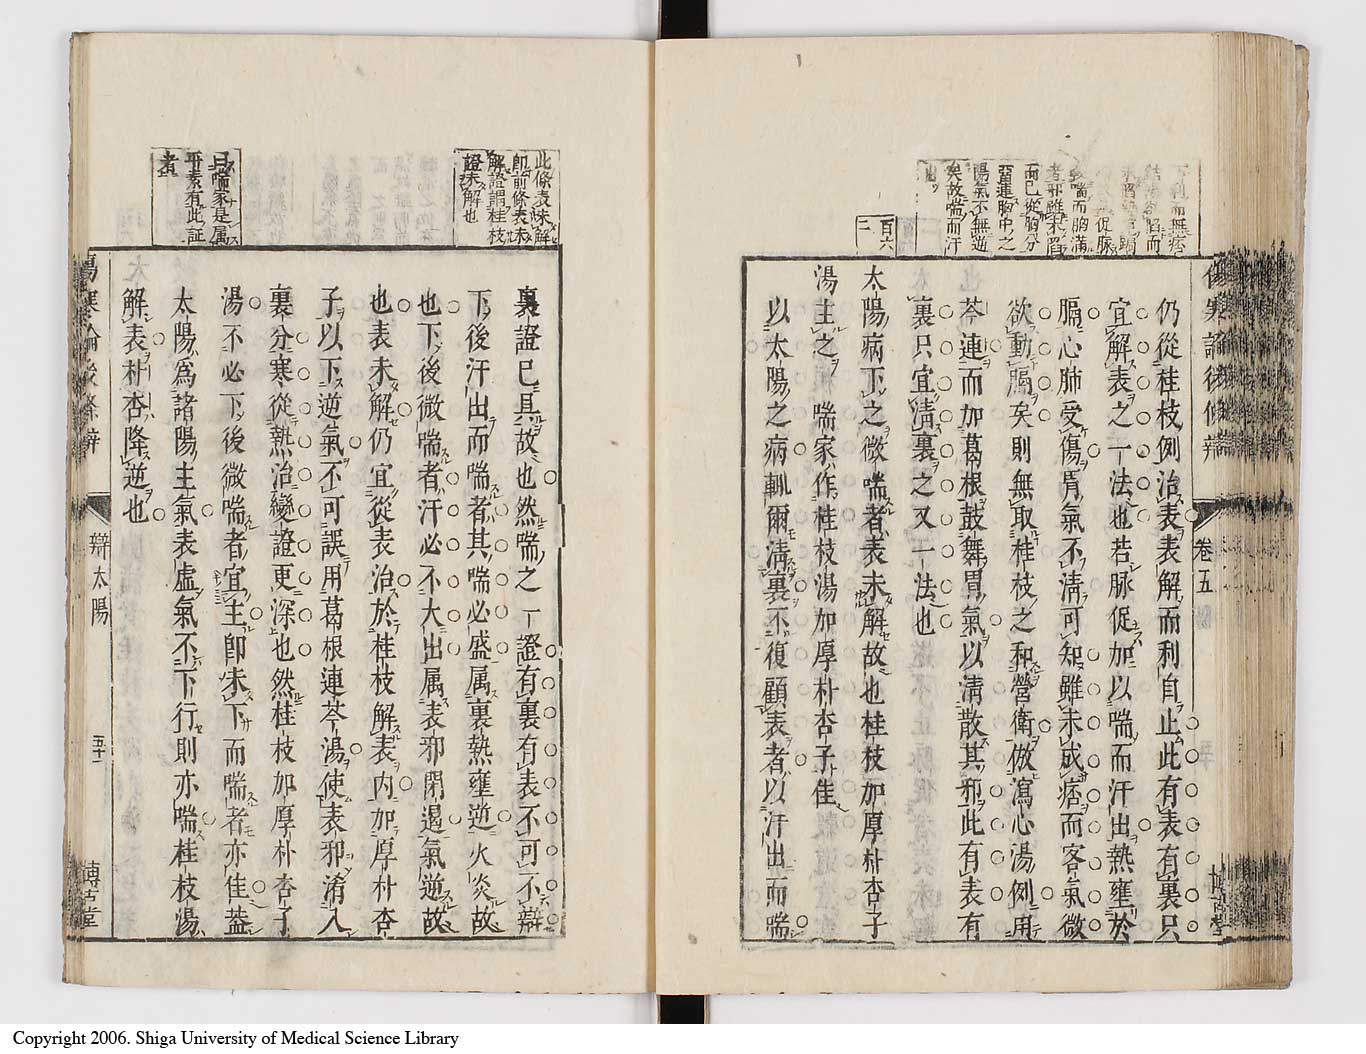 仍從桂枝例治表表解而利自止此有表有裏只
宜解表之一法也若脈促加以喘而汗出熱壅於
膈心肺受傷胃氣不淸可知雖未成痞而客氣微
欲動膈矣則無取桂枝之和營衞倣瀉心湯例用
芩連而加葛根鼓舞胃氣以淸散其邪此有表有
裏只宜淸裏之又一法也
百六
二
太陽病下之微喘者表未解故也桂枝加厚朴杏子
湯主之 喘家作桂枝湯加厚朴杏子佳
以太陽之病輒爾淸裏不復顧表者以汗出而喘
下利而無痞
陷而
促脈
喘而胸滿
者邪雖未陷
而已從胸分
置連胸中之
陽氣不無逆
矣故喘而汗
卷五
此條表未解
卽前條表未
解證謂桂枝
證未解也
裏證已具故也然喘之一證有裏有表不可不辯
下後汗出而喘者其喘必盛屬裏熱壅逆火炎故
也下後微喘者汗必不大出屬表邪閉遏氣逆故
也表未解仍宜從表治於桂枝解表內加厚朴杏
子以下逆氣不可誤用葛根連芩湯使表邪淆入
裏分寒從熱治變證更深也然桂枝加厚朴杏子
湯不必下後微喘者宜主卽未下而喘者亦佳蓋
太陽爲諸陽主氣表虛氣不下行則亦喘桂枝湯
解表朴杏降逆也
曰喘家是属
平素有此証
者
傷寒論後條辨
辯太陽
五十二
博古堂
Copyright 2006. Shiga University of Medical Science Library